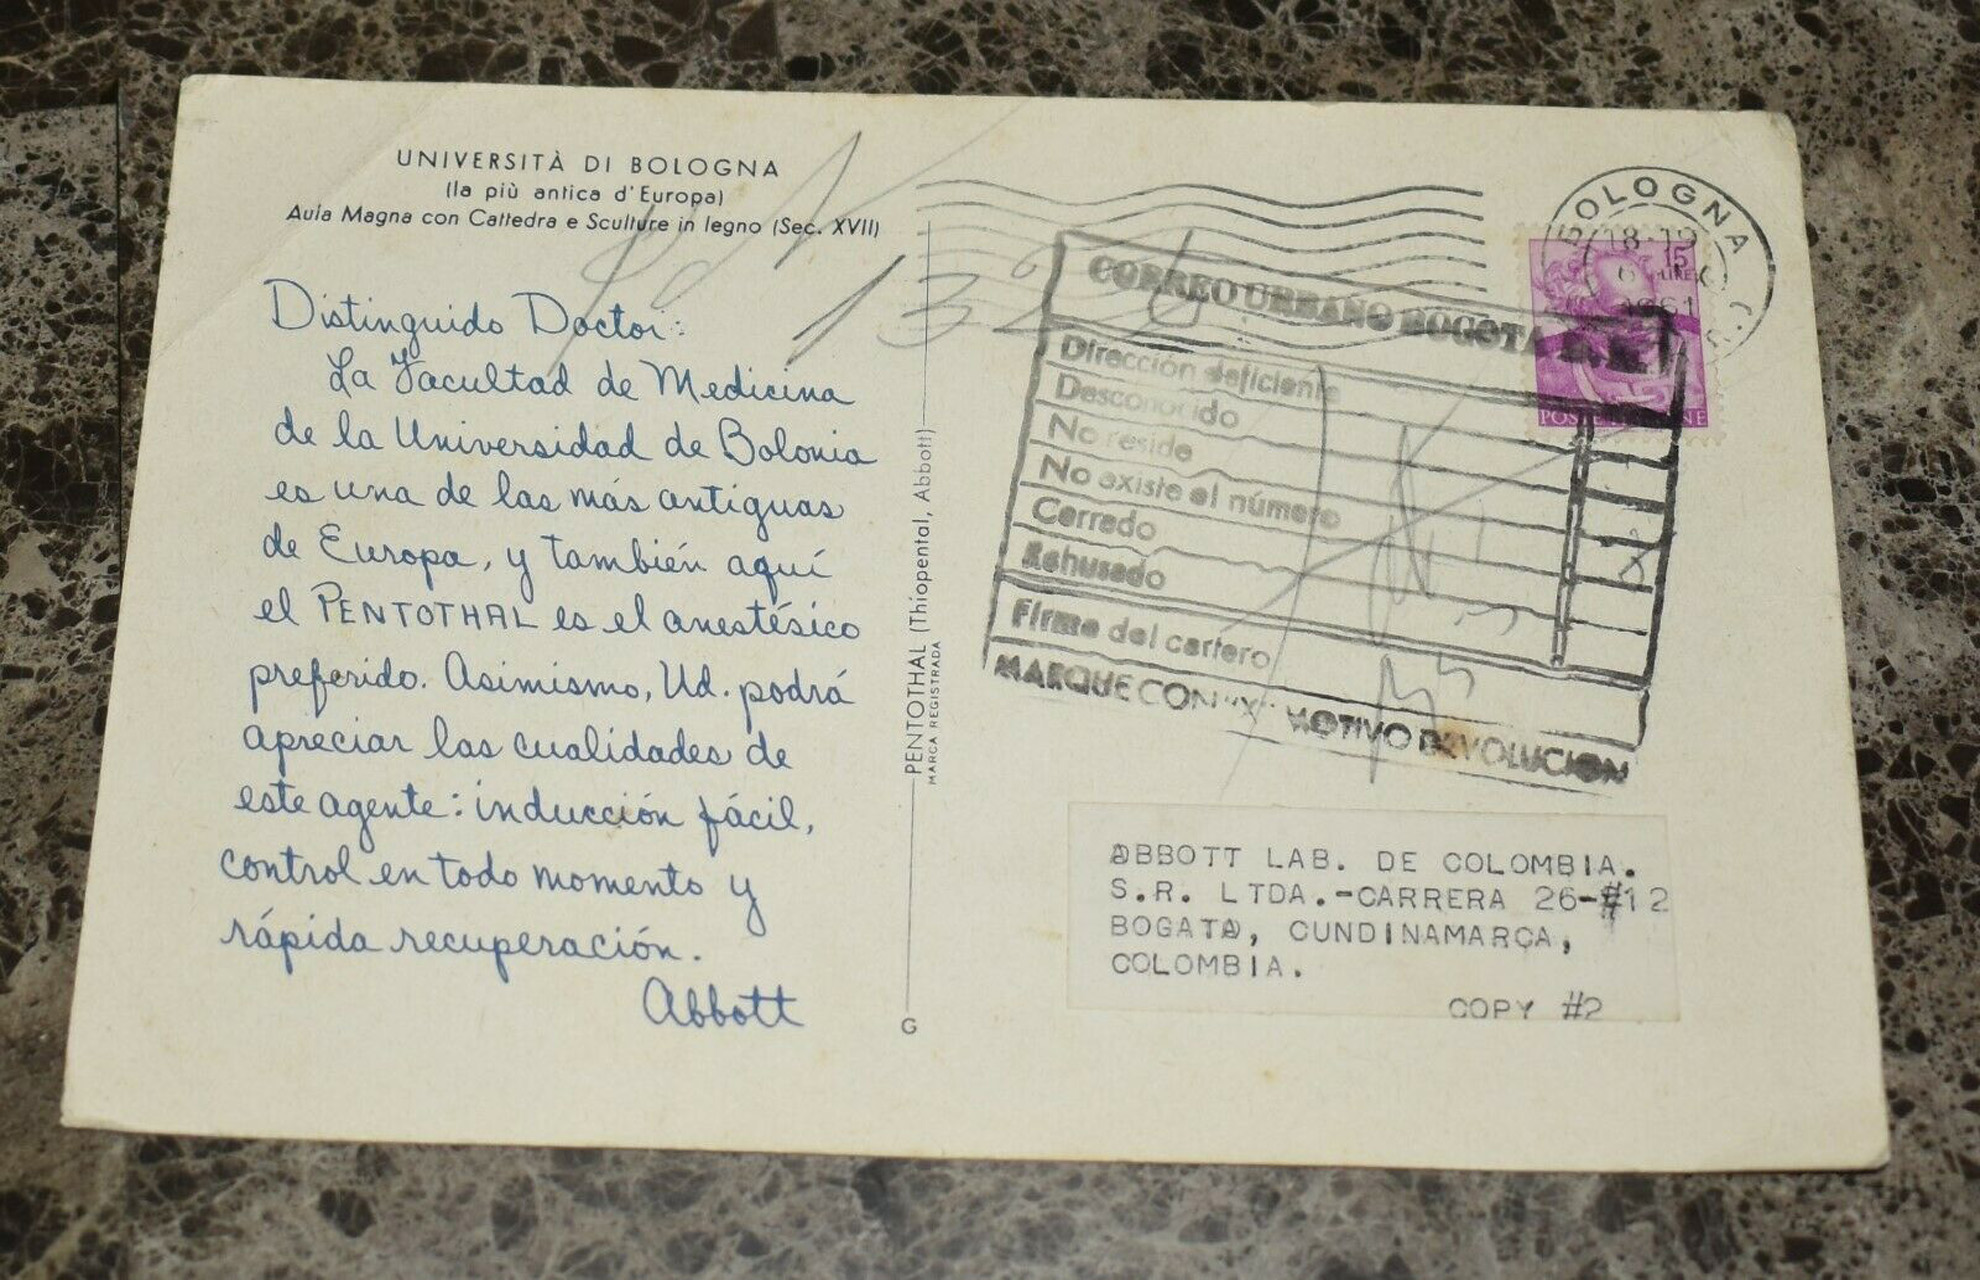 UNIVERSITÀ DI BOLOGNA
(la più antica d'Europa)
Aula Magna con Cattedra e Sculture in legno (Sec. XVII)
Distinguido Doctor:
La Facultad de Medicina
de la Universidad de Bolonia
es una de las más antiguas
de Europa, y también aquí
el PENTOTHAL es el anestésico
preferido. Asimismo, Ud. podrá
apreciar las cualidades de
este agente: inducción fácil,
control en todo momento y
rápida recuperación.
Abbott
PENTOTHAL (Thiopental, Abbott)
MARCA REGISTRADA
G
BOLOGNA C.P.
18-19
1961
15
LIRE
POSTE ITALIANE
CORREO URBANO BOGOTA D. E.
Dirección deficiente
Desconocido
No reside
No existe el número
Cerrado
Rehusado
Firma del cartero
MARQUE CON "X" MOTIVO DEVOLUCION
ABBOTT LAB. DE COLOMBIA.
S.R. LTDA.-CARRERA 26-#12
BOGATA, CUNDINAMARCA,
COLOMBIA.
COPY #2